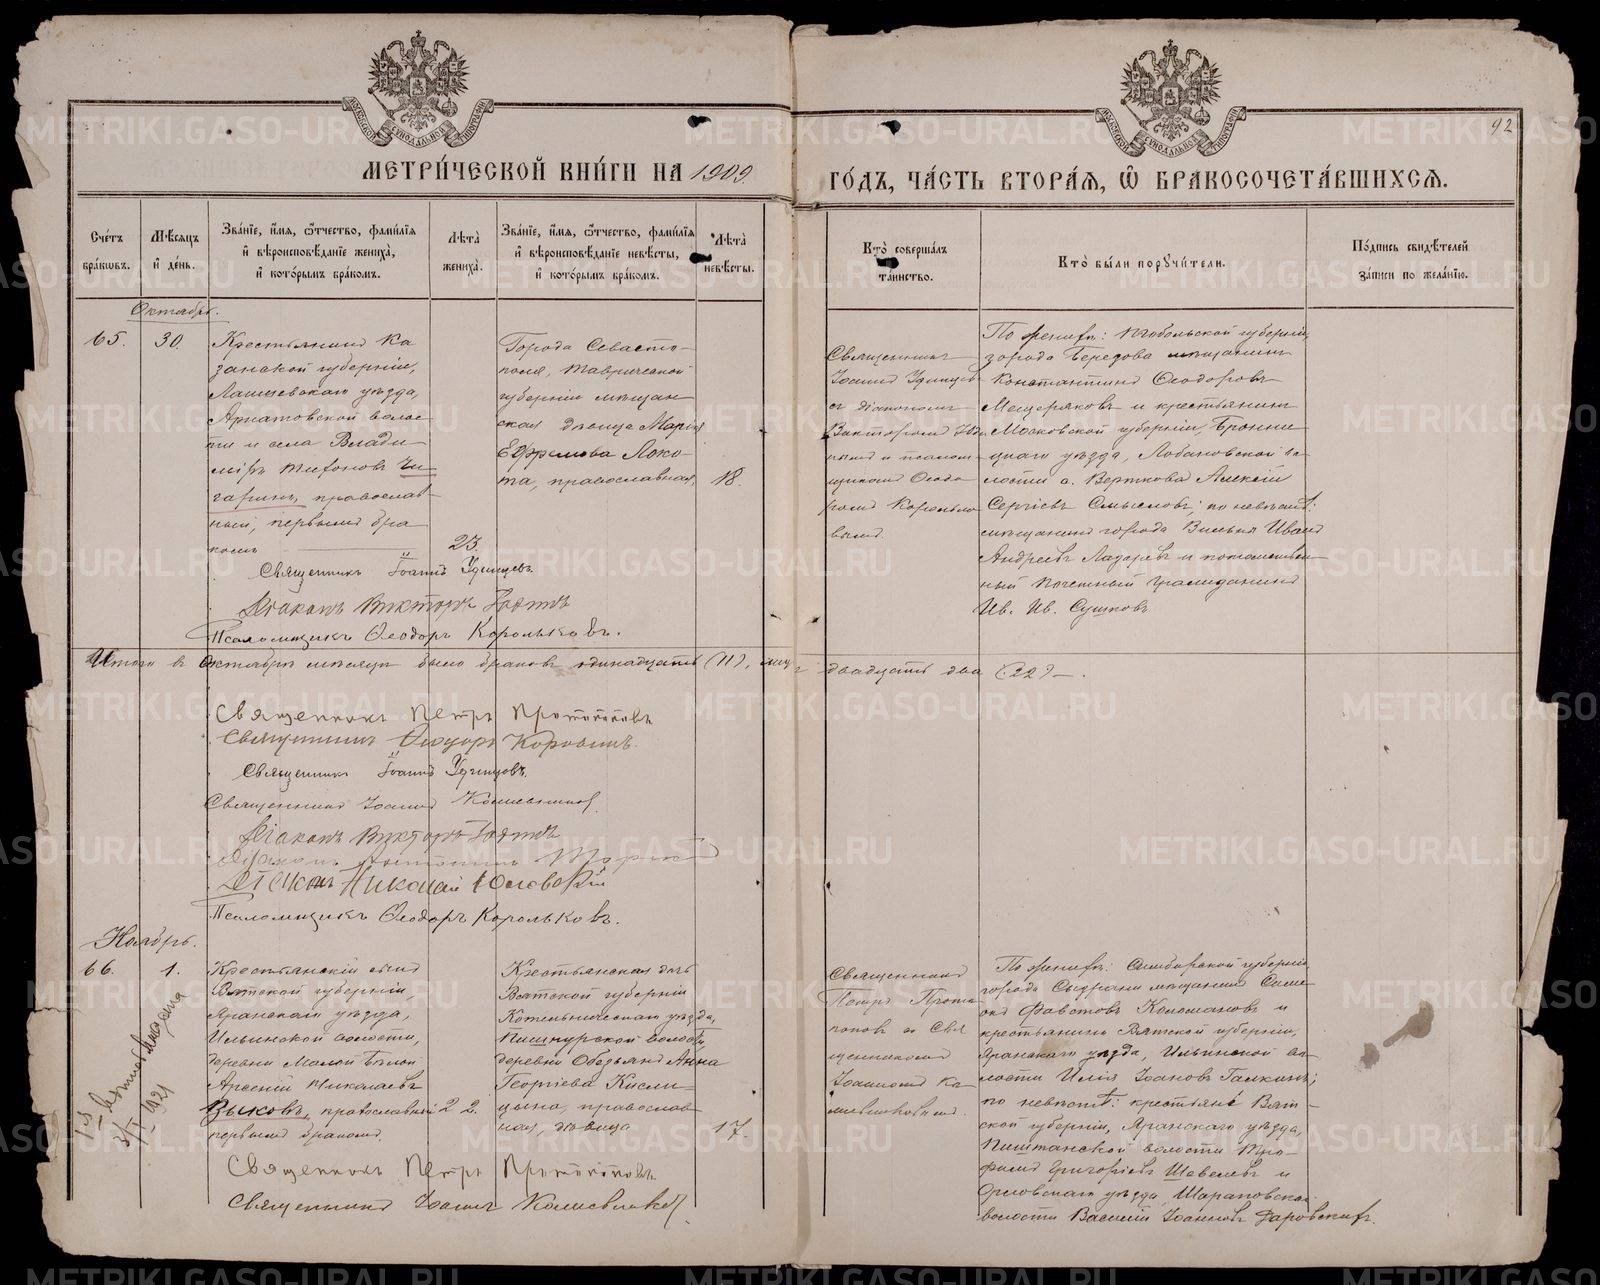 МЕТРИ́ЧЕСКОЙ КНИ́ГИ НА 1909.
ГО́ДЪ, ЧА́СТЬ ВТОРА́Я, Ѡ҆ БРАКОСОЧЕТА́ВШИХСЯ.
92
Сче́тъ бра́ковъ.
Мѣ́сяцъ и҆ де́нь.
Зва́нїе, и҆́мя, ѻ҆́тчество, фами́лїя и҆ вѣроисповѣ́данїе жениха̀, и҆ кото́рымъ бра́комъ.
Лѣ́та жениха̀.
Зва́нїе, и҆́мя, ѻ҆́тчество, фами́лїя и҆ вѣроисповѣ́данїе невѣ́сты, и҆ кото́рымъ бра́комъ.
Лѣ́та невѣ́сты.
Кто̀ соверша́лъ та́инство.
Кто̀ бы́ли поручи́тели.
По́дпись свидѣ́телей за́писи по жела́нїю.
Октябрь.
65.
30.
Крестьянинъ Ка
занской губерніи,
Лаишевскаго уѣзда,
волос
ти и села Влади
міръ Тихоновъ Чи
гаринъ, православ
ный, первымъ бра
комъ
23.
Города Севасто-
поля, Таврической
губерніи мѣщан
ская дѣвица Марія
Ефремова Локо-
та, православная,
18.
Священникъ
Іоаннъ Удинцевъ
съ діакономъ
Викторомъ
и псалом-
щикомъ Ѳеодо
ромъ Королько
вымъ.
По женихѣ: Тобольской губерніи,
города Березова мѣщанинъ
Константинъ Ѳеодоровъ
Мещеряковъ и крестьянинъ
Московской губерніи, Бронни
цкаго уѣзда, Лобановской во
лости д. Верткова Алексій
Сергіевъ Смысловъ; по невѣстѣ:
мѣщанинъ города Вильны Иванъ
Андреевъ Лазаревъ и потомствен
ный почетный гражданинъ
Ив. Ив. Сушковъ
Священникъ Іоаннъ Удинцевъ.
Діаконъ Викторъ
Псаломщикъ Ѳеодоръ Корольковъ.
Итого въ Октябрѣ мѣсяцѣ было браковъ одинадцать (11), лицъ двадцать два (22) –.
Священникъ Петръ Протопоповъ
Священникъ Ѳеодоръ Коровинъ.
Священникъ Іоаннъ Удинцевъ.
Священникъ Іоаннъ
Діаконъ Викторъ
Діаконъ
Діаконъ Николай
Псаломщикъ Ѳеодоръ Корольковъ.
Ноябрь.
66.
1.
Крестьянскій сынъ
Вятской губерніи,
Яранскаго уѣзда,
Ильинской волости,
деревни Малой
Арсеній Николаевъ
Зыковъ, православный
первымъ бракомъ.
22.
Крестьянская дочь
Вятской губерніи
Котельническаго уѣзда,
волости,
деревни Анна
Георгіева Кисли-
цына, православ-
ная, дѣвица
17.
Священникъ
Петръ Прото
поповъ съ Свя
щенникомъ
Іоанномъ
По женихѣ: Симбирской губерніи
города Сызрани мѣщанинъ Симе
онъ Фавстовъ и
крестьянинъ Вятской губерніи,
Яранскаго уѣзда, Ильинской во-
лости Илія Іоановъ Галкинъ;
по невѣстѣ: крестьяне Вят-
ской губерніи, Яранскаго уѣзда,
Пиштанской волости Тро-
фимъ Григоріевъ Шевелевъ и
Орловскаго уѣзда Шараповской
волости Василій Іоанновъ
Священникъ Петръ Протопоповъ
Священникъ Іоаннъ
1921
METRIKI.GASO-URAL.RU